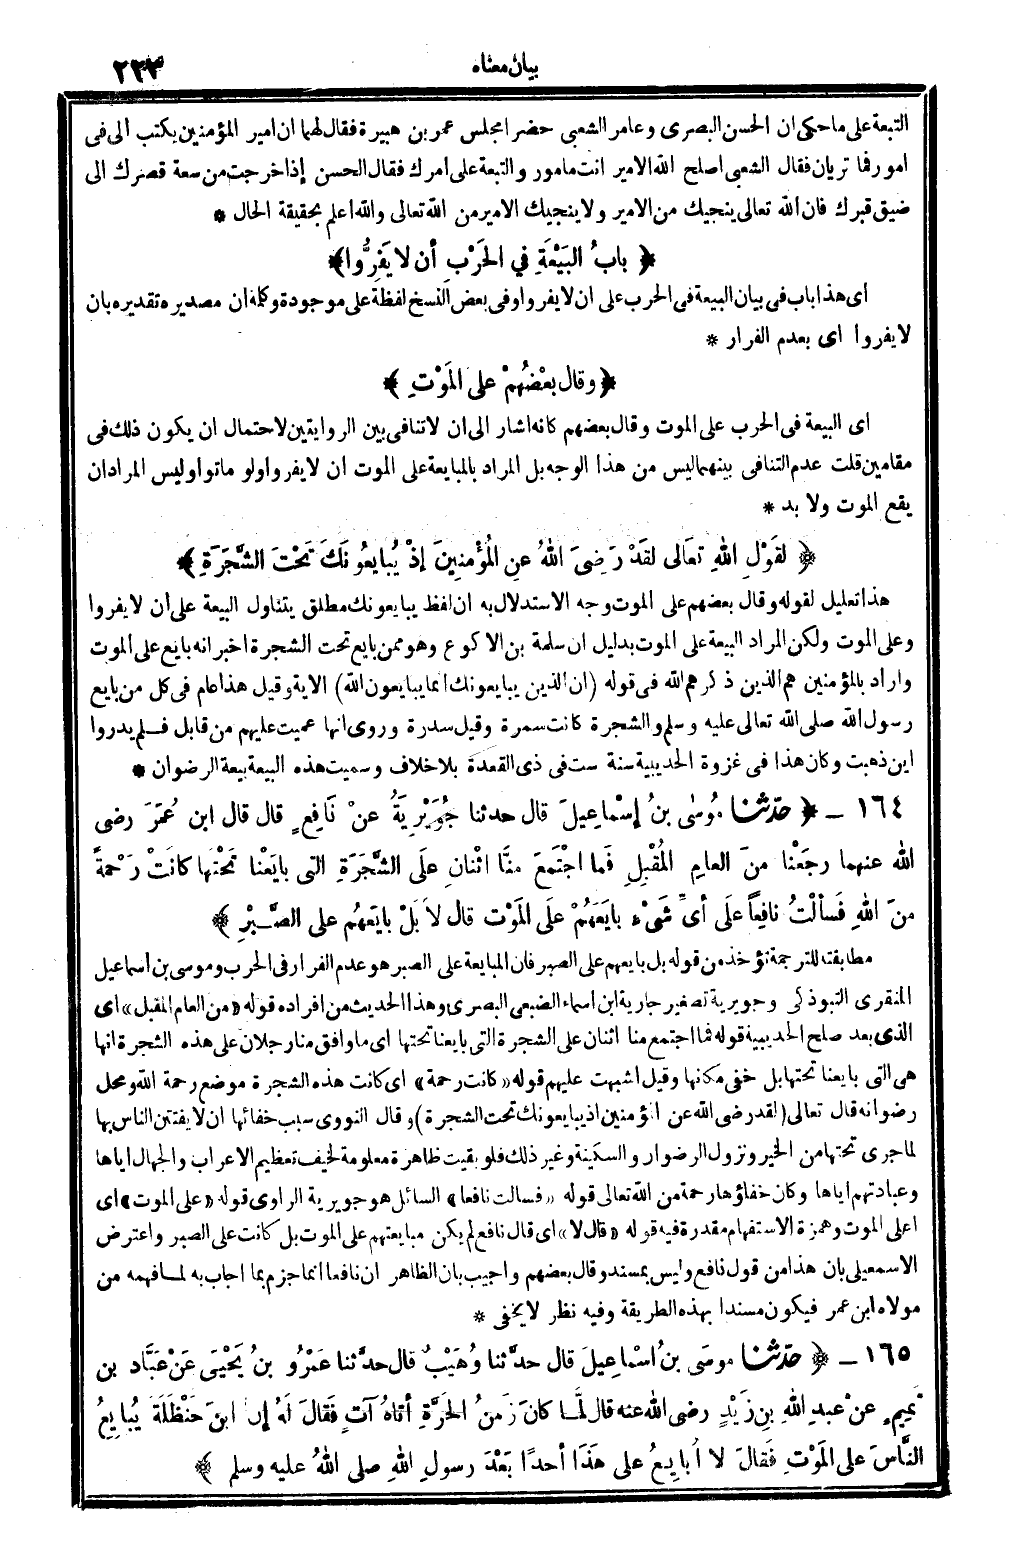 بيان معناه
٢٢٣
التبعة على ما حكى ان الحسن البصرى وعامر الشعبى حضرا مجلس عمر بن هبيرة فقال لهما ان امير المؤمنين يكتب الى فى
امور فما تريان فقال الشعبى اصلح الله الامير انت مامور والتبعة على امرك فقال الحسن إذا خرجت من سعة قصرك الى
ضيق قبرك فان الله تعالى ينجيك من الامير ولا ينجيك الامير من الله تعالى والله اعلم بحقيقة الحال *
﴿ بابُ البَيْعَةِ في الحَرْبِ أن لا يَفِرُّوا ﴾
اى هذا باب فى بيان البيعة فى الحرب على ان لا يفروا وفى بعض النسخ لفظة على موجودة وكلمة ان مصديره تقديره بان
لا يفروا اى بعدم الفرار *
﴿ وقال بعْضُهُمْ على المَوْتِ ﴾
اى البيعة فى الحرب على الموت وقال بعضهم كانه اشار الى ان لا تنافى بين الروايتين لاحتمال ان يكون ذلك فى
مقامين قلت عدم التنافى بينهما ليس من هذا الوجه بل المراد بالمبايعة على الموت ان لا يفروا ولو ماتوا وليس المراد ان
يقع الموت ولا بد *
﴿ لقَوْلِ اللهِ تعالى لقَدْ رَضِىَ اللهُ عنِ المُؤْمنِينَ إذْ يُبايعُونَكَ تَحْتَ الشَّجَرَةِ ﴾
هذا تعليل لقوله وقال بعضهم على الموت وجه الاستدلال به ان لفظ يبايعونك مطلق يتناول البيعة على ان لا يفروا
وعلى الموت ولكن المراد البيعة على الموت بدليل ان سلمة بن الاكوع وهو ممن بايع تحت الشجرة اخبر انه بايع على الموت
واراد بالمؤمنين هم الذين ذكرهم الله فى قوله (ان الذين يبايعونك انما يبايعون الله) الاية وقيل هذا عام فى كل من بايع
رسول الله صلى الله تعالى عليه وسلم والشجرة كانت سمرة وقيل سدرة وروى انها عميت عليهم من قابل فلم يدروا
اين ذهبت وكان هذا فى غزوة الحديبية سنة ست فى ذى القعدة بلا خلاف وسميت هذه البيعة بيعة الرضوان *
١٦٤ ـ ﴿ حَدَّثَنَا مُوسَى بنُ إسْماعِيلَ قال حدثنا جُوَيْرِيَةُ عنْ نَافِعٍ قال قال ابن عُمَرَ رضى
الله عنهما رجَعْنا منَ العامِ المُقْبِلِ فَما اجْتَمَعَ منَّا اثْنانِ علَى الشَّجَرَةِ التى بايَعْنا تَحْتَها كانَتْ رَحْمةً
منَ اللهِ فَسألْتُ نافِعاً علَى أىِّ شَىْءٍ بايَعَهُمْ علَى المَوْت قال لاَ بَلْ بايَعَهُم على الصَّبْرِ ﴾
مطابقته للترجمة تؤخذ من قوله بل بايعهم على الصبر فان المبايعة على الصبر هو عدم الفرار فى الحرب وموسى بن اسماعيل
المنقرى التبوذكى وجويرية تصغير جارية ابن اسماء الضبعى البصرى وهذا الحديث من افراده قوله «من العام المقبل» اى
الذى بعد صلح الحديبية قوله فما اجتمع منا اثنان على الشجرة التى بايعنا تحتها اى ما وافق منا رجلان على هذه الشجرة انها
هى التى بايعنا تحتها بل خفى مكانها وقيل اشبهت عليهم قوله «كانت رحمة» اى كانت هذه الشجرة موضع رحمة الله ومحل
رضوانه قال تعالى (لقد رضى الله عن المؤمنين اذ يبايعونك تحت الشجرة) وقال النووى سبب خفائها ان لا يفتتن الناس بها
لما جرى تحتها من الخير ونزول الرضوان والسكينة وغير ذلك فلو بقيت ظاهرة معلومة لخيف تعظيم الاعراب والجهال اياها
وعبادتهم اياها وكان خفاؤها رحمة من الله تعالى قوله «فسالت نافعا» السائل هو جويرية الراوى قوله «على الموت» اى
اعلى الموت وهمزة الاستفهام مقدرة فيه قوله «قال لا» اى قال نافع لم يكن مبايعتهم على الموت بل كانت على الصبر واعترض
الاسمعيلى بان هذا من قول نافع وليس بمسند وقال بعضهم واجيب بان الظاهر ان نافعا انما جزم بما اجاب به لما فهمه من
مولاه ابن عمر فيكون مسندا بهذه الطريقة وفيه نظر لا يخفى *
١٦٥ ـ ﴿ حَدَّثَنَا موسَى بنُ اسْماعِيلَ قال حدَّثنا وُهَيْبٌ قال حدَّثنا عَمْرُو بنُ يَحْيَى عَنْ عَبَّاد بن
تَمِيمٍ عنْ عبدِ اللهِ بنِ زَيْدٍ رضى الله عنه قال لَمَّا كانَ زَمنُ الحَرَّةِ أتاهُ آتٍ فَقالَ لَهُ إنَّ ابنَ حَنْظَلَةَ يُبايِعُ
النَّاسَ على المَوْتِ فَقالَ لا أُبايِعُ على هَذَا أحدًا بَعْدَ رسولِ اللهِ صلى اللهُ عليه وسلم ﴾